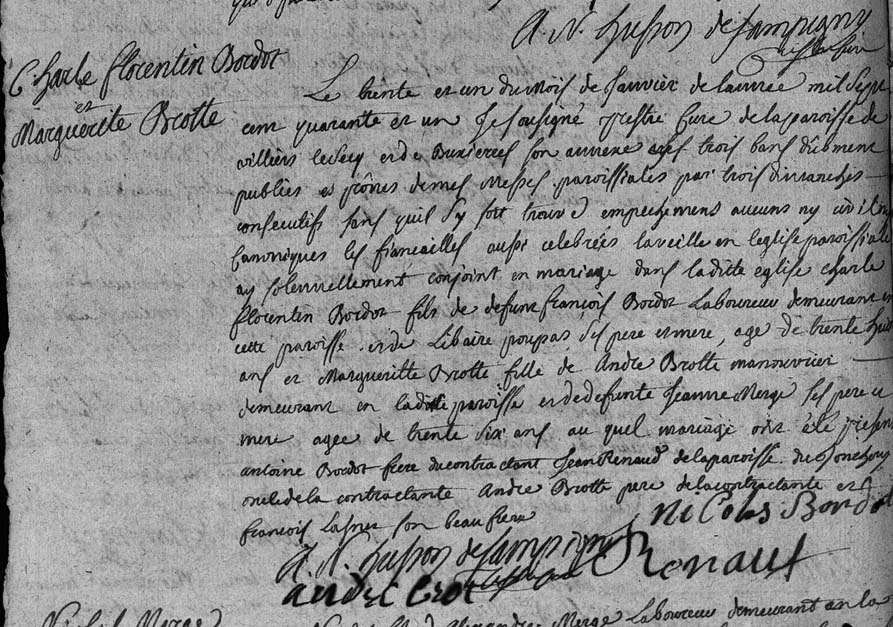 A. N. husson de Sampigny
Charle florentin Bordot
et
Marguerite Brotte
Le trente et un du mois de Janvier de lannée mil sept
cent quarante et un Je sousigné prestre Cure de la paroisse de
villiers lesecq et de Buxierres son annexe apres trois bans dûbment
publies es prônes de mes Messes paroissiales par trois dimanches
consecutifs sans quil sy soit trouvé empechemens aucuns ny civil ny
Canoniques les fiancailles aussi celebrées la veille en leglise paroissiale
ay solemnellement conjoint en mariage dans laditte eglise charle
florentin Bordot fils de defunt françois Bordot Laboureur demeurant en
cette paroisse et de Libaire poupas ses pere et mere, age de trente huit
ans et Margueritte Brotte fille de Andre Brotte manouvrier
demeurant en laditte paroisse et de defunte Jeanne Merge ses pere et
mere agee de trente six ans au quel mariage ont été presens
antoine Bordot frere du contractant Jean Renaud de la paroisse
oncle de la contractante Andre Brotte pere de la contractante et
françois Lasnes son beau frere
nicolas Bordot
A. N. husson de Sampigny
Renaut
andre brot
Merge Laboureur demeurant en la